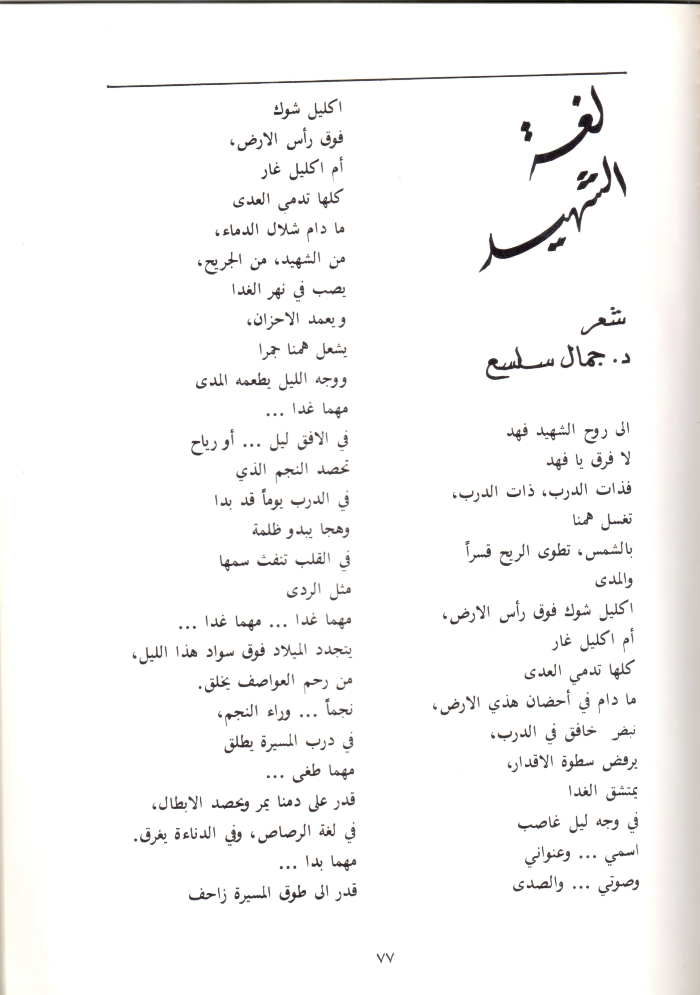 لغة
الشهيد
شعر
د. جمال سلسع
الى روح الشهيد فهد
لا فرق يا فهد
فذات الدرب، ذات الدرب،
تغسل همنا
بالشمس، تطوى الريح قسراً
والمدى
اكليل شوك فوق رأس الارض،
أم اكليل غار
كلها تدمي العدى
ما دام في أحضان هذي الارض،
نبض خافق في الدرب،
يرفض سطوة الاقدار،
يمتشق الغدا
في وجه ليل غاصب
اسمي ... وعنواني
وصوتي ... والصدى
اكليل شوك
فوق رأس الارض،
أم اكليل غار
كلها تدمي العدى
ما دام شلال الدماء،
من الشهيد، من الجريح،
يصب في نهر الغدا
ويعمد الاحزان،
يشعل همنا جمرا
ووجه الليل يطعمه المدى
مهما غدا ...
في الافق ليل ... أو رياح
تحصد النجم الذي
في الدرب يوماً قد بدا
وهجا يبدو ظلمة
في القلب تنفث سمها
مثل الردى
مهما غدا ... مهما غدا ...
يتجدد الميلاد فوق سواد هذا الليل،
من رحم العواصف يخلق.
نجماً ... وراء النجم،
في درب المسيرة يطلق
مهما طغى ...
قدر على دمنا يمر ويحصد الابطال،
في لغة الرصاص، وفي الدناءة يغرق.
مهما بدا ...
قدر الى طوق المسيرة زاحف
٧٧